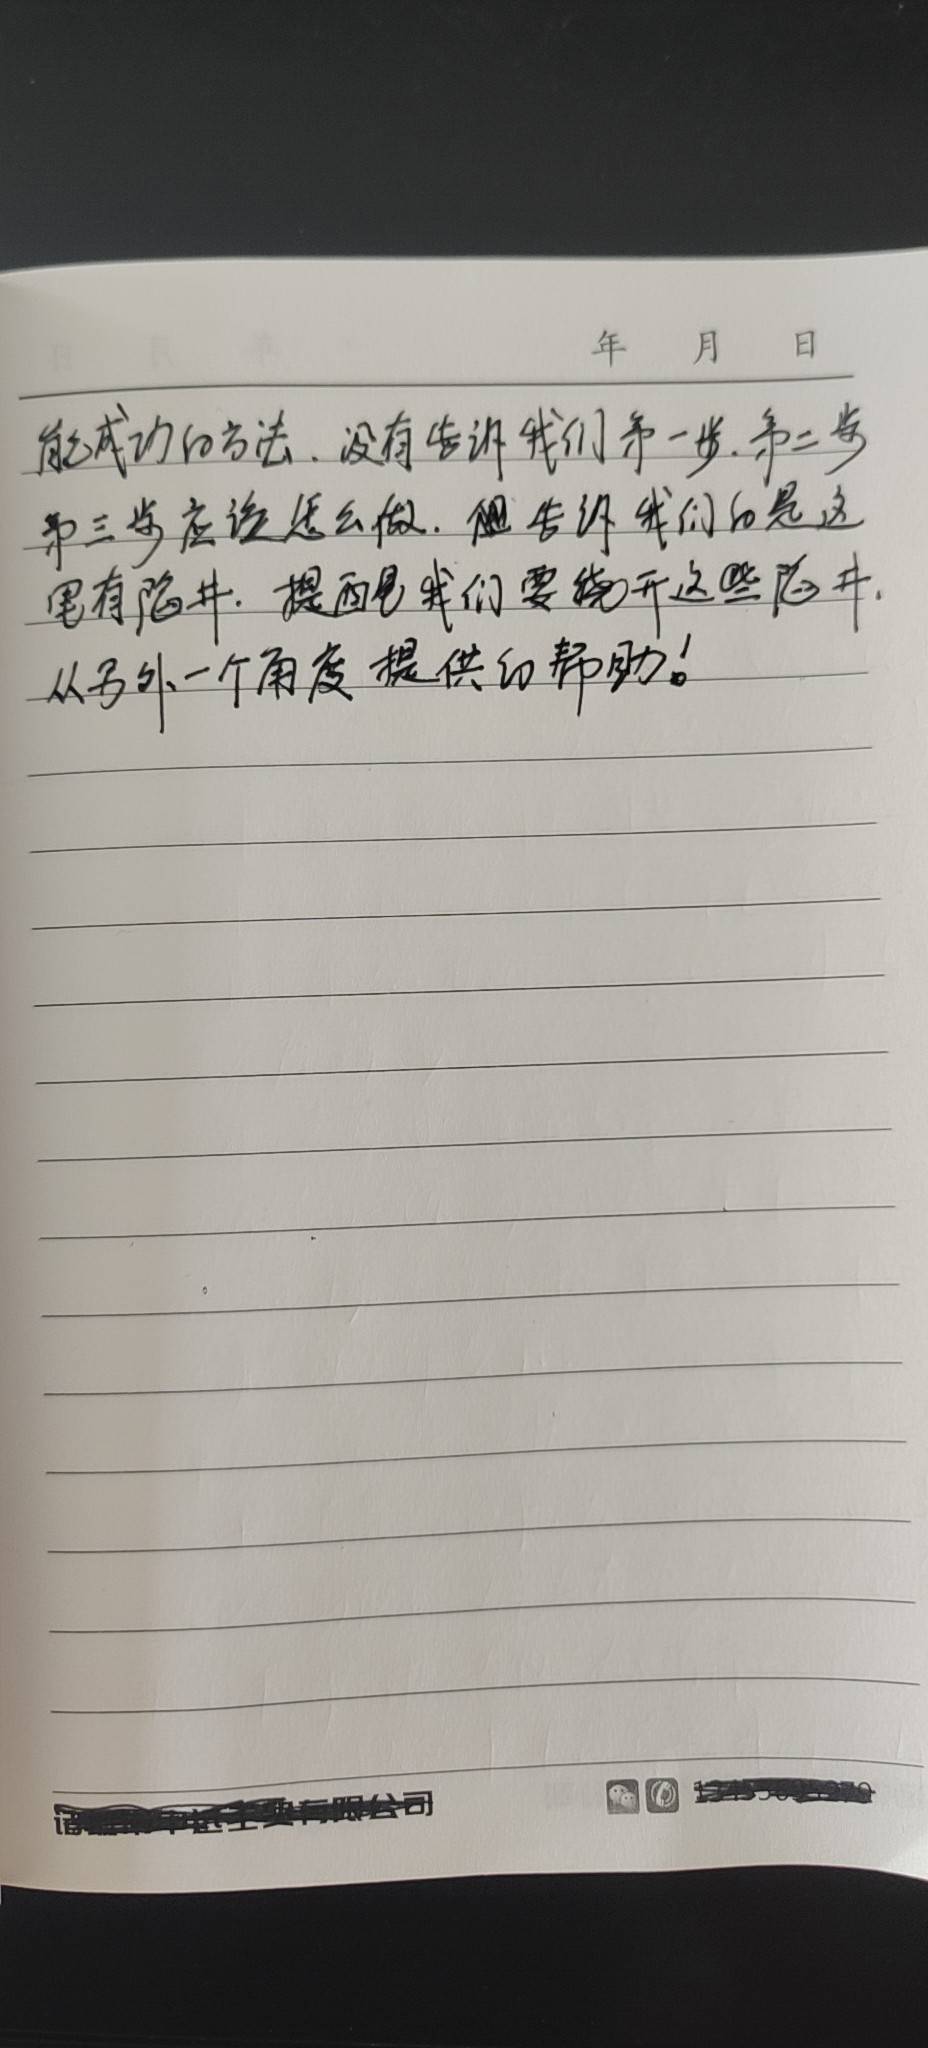 年 月 日
能成功的方法.没有告诉我们第一步.第二步
第三步应该怎么做.但告诉我们的是这
里有陷井.提醒我们要绕开这些陷井.
从另外一个角度提供的帮助!
有限公司